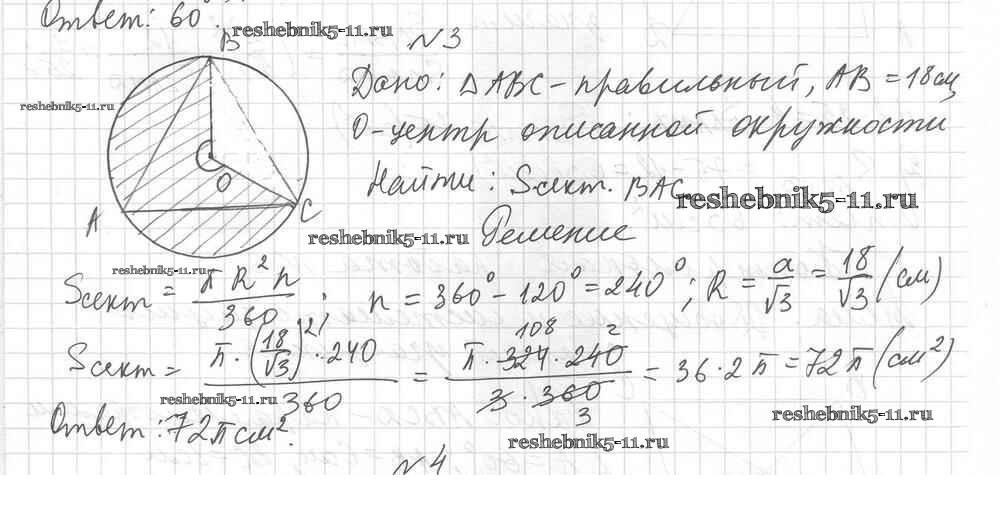 Ответ: 60°.
reshebnik5-11.ru
№3
B
Дано: ΔABC - правильный, AB = 18 см
reshebnik5-11.ru
O - центр описанной окружности
O
Найти: Sсект. BAC
reshebnik5-11.ru
A
C
reshebnik5-11.ru
Решение
reshebnik5-11.ru
Sсект = πR²n / 360; n = 360° - 120° = 240°; R = a/√3 = 18/√3 (см)
Sсект = π·(18/√3)²·240 / 360 = π·324·240 / 3·360 = 36·2π = 72π (см²)
108 2
3
reshebnik5-11.ru
reshebnik5-11.ru
Ответ: 72π см².
reshebnik5-11.ru
№4